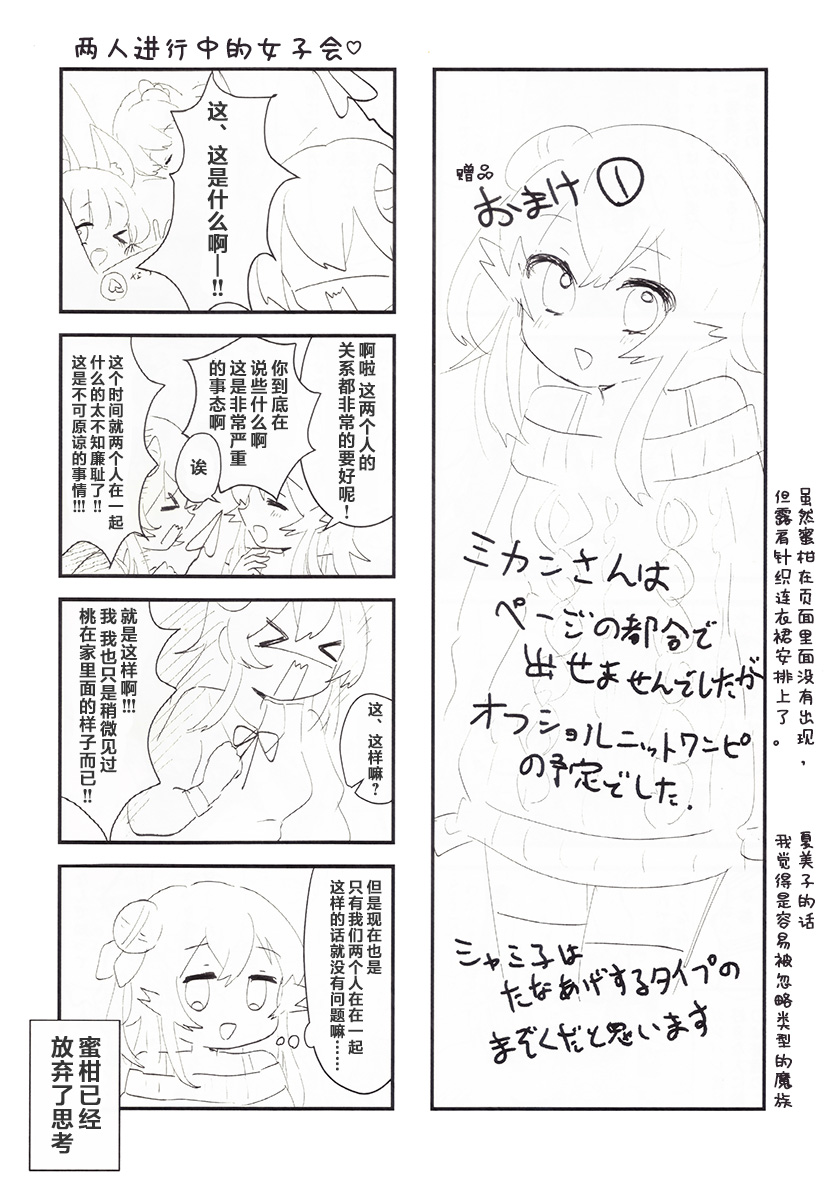 两人进行中的女子会♡
赠品
おまけ ①
ミカンさんは
ページの都合で
出せませんでしたが
オフショルニットワンピ
の予定でした.
シャミ子は
たなあげするタイプの
まぞくだと思います
虽然蜜柑在页面里面没有出现，
但露肩针织连衣裙安排上了。
夏美子的话
我觉得是容易被忽略类型的魔族
这、这是什么啊——!!
啊啦 这两个人的
关系都非常的要好呢！
你到底在
说些什么啊
这是非常严重
的事态啊
诶
这个时间就两个人在一起
什么的太不知廉耻了!!
这是不可原谅的事情!!!
这、这样嘛？
就是这样啊!!!
我 我也只是稍微见过
桃在家里面的样子而已!!
但是现在也是
只有我们两个人在在一起
这样的话就没有问题嘛……
蜜柑已经
放弃了思考